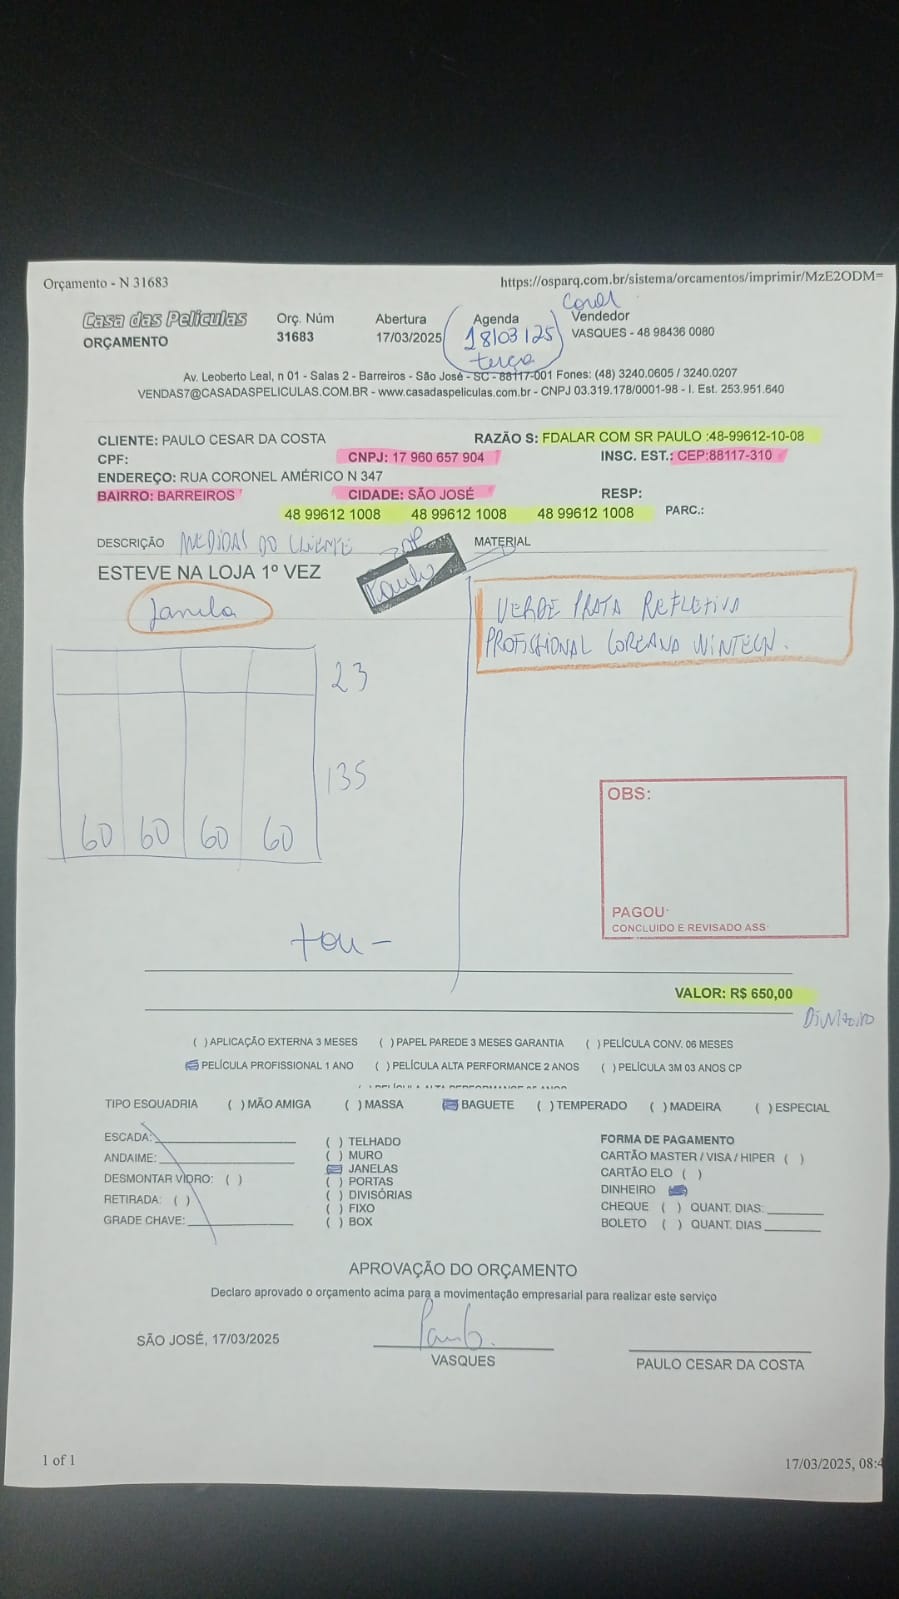 Orçamento - N 31683
https://osparq.com.br/sistema/orcamentos/imprimir/MzE2ODM=
Casa das Películas
ORÇAMENTO
Orç. Núm
31683
Abertura
17/03/2025
Agenda
18/03/25
terça
Vendedor
VASQUES - 48 98436 0080
Av. Leoberto Leal, n 01 - Salas 2 - Barreiros - São José - SC - 88117-001 Fones: (48) 3240.0605 / 3240.0207
VENDAS7@CASADASPELICULAS.COM.BR - www.casadaspeliculas.com.br - CNPJ 03.319.178/0001-98 - I. Est. 253.951.640
CLIENTE: PAULO CESAR DA COSTA
RAZÃO S: FDALAR COM SR PAULO :48-99612-10-08
CPF:
CNPJ: 17 960 657 904
INSC. EST.: CEP:88117-310
ENDEREÇO: RUA CORONEL AMÉRICO N 347
BAIRRO: BARREIROS
CIDADE: SÃO JOSÉ
RESP:
48 99612 1008 48 99612 1008 48 99612 1008
PARC.:
DESCRIÇÃO MEDIDAS DO CLIENTE
MATERIAL
ESTEVE NA LOJA 1º VEZ
Paulo
Janela
VERDE PRATA REFLETIVA
PROFISSIONAL COREANA WINTECH.
23
135
60 60 60 60
OBS:
PAGOU:
CONCLUIDO E REVISADO ASS
VALOR: R$ 650,00
DINHEIRO
( ) APLICAÇÃO EXTERNA 3 MESES ( ) PAPEL PAREDE 3 MESES GARANTIA ( ) PELÍCULA CONV. 06 MESES
PELÍCULA PROFISSIONAL 1 ANO ( ) PELÍCULA ALTA PERFORMANCE 2 ANOS ( ) PELÍCULA 3M 03 ANOS CP
TIPO ESQUADRIA ( ) MÃO AMIGA ( ) MASSA BAGUETE ( ) TEMPERADO ( ) MADEIRA ( ) ESPECIAL
ESCADA:
ANDAIME:
DESMONTAR VIDRO: ( )
RETIRADA: ( )
GRADE CHAVE:
( ) TELHADO
( ) MURO
JANELAS
( ) PORTAS
( ) DIVISÓRIAS
( ) FIXO
( ) BOX
FORMA DE PAGAMENTO
CARTÃO MASTER / VISA / HIPER ( )
CARTÃO ELO ( )
DINHEIRO
CHEQUE ( ) QUANT. DIAS:
BOLETO ( ) QUANT. DIAS
APROVAÇÃO DO ORÇAMENTO
Declaro aprovado o orçamento acima para a movimentação empresarial para realizar este serviço
SÃO JOSÉ, 17/03/2025
VASQUES
PAULO CESAR DA COSTA
1 of 1
17/03/2025, 08:4